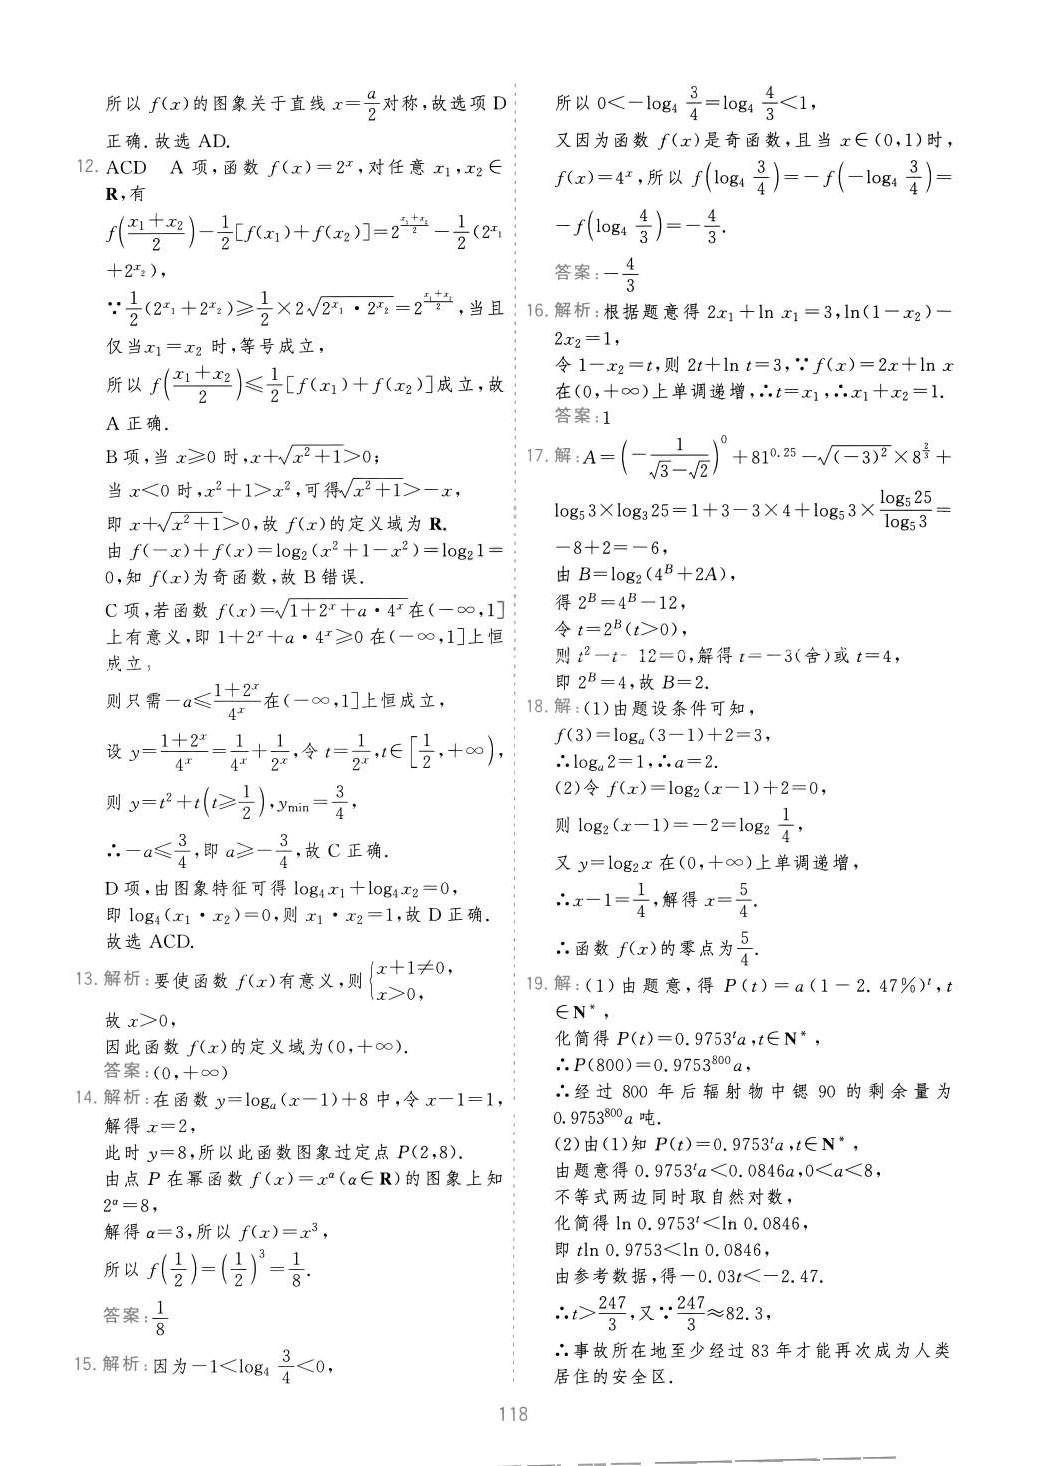 所以 f(x)的图象关于直线 x=a/2对称,故选项 D
正确.故选 AD.
12. ACD　A 项,函数 f(x)=2ˣ,对任意 x₁,x₂∈
R,有
f((x₁+x₂)/2)-1/2[f(x₁)+f(x₂)]=2^((x₁+x₂)/2)-1/2(2^x₁
+2^x₂),
∵1/2(2^x₁+2^x₂)≥1/2×2√(2^x₁·2^x₂)=2^((x₁+x₂)/2),当且
仅当x₁=x₂ 时,等号成立,
所以 f((x₁+x₂)/2)≤1/2[f(x₁)+f(x₂)]成立,故
A 正确.
B 项,当 x≥0 时,x+√(x²+1)>0;
当 x<0 时,x²+1>x²,可得√(x²+1)>-x,
即 x+√(x²+1)>0,故 f(x)的定义域为 R.
由 f(-x)+f(x)=log₂(x²+1-x²)=log₂1=
0,知 f(x)为奇函数,故 B 错误.
C 项,若函数 f(x)=√(1+2ˣ+a·4ˣ)在(-∞,1]
上有意义,即 1+2ˣ+a·4ˣ≥0 在(-∞,1]上恒
成立,
则只需-a≤(1+2ˣ)/4ˣ在(-∞,1]上恒成立,
设 y=(1+2ˣ)/4ˣ=1/4ˣ+1/2ˣ,令 t=1/2ˣ,t∈[1/2,+∞),
则 y=t²+t(t≥1/2),y_min=3/4,
∴-a≤3/4,即 a≥-3/4,故 C 正确.
D 项,由图象特征可得 log₄x₁+log₄x₂=0,
即 log₄(x₁·x₂)=0,则 x₁·x₂=1,故 D 正确.
故选 ACD.
13. 解析:要使函数 f(x)有意义,则{x+1≠0,
x>0,
故 x>0,
因此函数 f(x)的定义域为(0,+∞).
答案:(0,+∞)
14. 解析:在函数 y=logₐ(x-1)+8 中,令 x-1=1,
解得 x=2,
此时 y=8,所以此函数图象过定点 P(2,8).
由点 P 在幂函数 f(x)=x^α(α∈R)的图象上知
2^α=8,
解得 α=3,所以 f(x)=x³,
所以 f(1/2)=(1/2)³=1/8.
答案:1/8
15. 解析:因为-1<log₄ 3/4<0,
所以 0<-log₄ 3/4=log₄ 4/3<1,
又因为函数 f(x)是奇函数,且当 x∈(0,1)时,
f(x)=4ˣ,所以 f(log₄ 3/4)=-f(-log₄ 3/4)=
-f(log₄ 4/3)=-4/3.
答案:-4/3
16. 解析:根据题意得 2x₁+ln x₁=3,ln(1-x₂)-
2x₂=1,
令 1-x₂=t,则 2t+ln t=3,∵f(x)=2x+ln x
在(0,+∞)上单调递增,∴t=x₁,∴x₁+x₂=1.
答案:1
17. 解:A=(-1/(√3-√2))⁰+81^0.25-√((-3)²)×8^(2/3)+
log₅3×log₃25=1+3-3×4+log₅3×log₅25/log₅3=
-8+2=-6,
由 B=log₂(4^B+2A),
得 2^B=4^B-12,
令 t=2^B(t>0),
则 t²-t-12=0,解得 t=-3(舍)或 t=4,
即 2^B=4,故 B=2.
18. 解:(1)由题设条件可知,
f(3)=logₐ(3-1)+2=3,
∴logₐ2=1,∴a=2.
(2)令 f(x)=log₂(x-1)+2=0,
则 log₂(x-1)=-2=log₂ 1/4,
又 y=log₂x 在(0,+∞)上单调递增,
∴x-1=1/4,解得 x=5/4.
∴函数 f(x)的零点为5/4.
19. 解:(1)由题意,得 P(t)=a(1-2.47%)ᵗ,t
∈N*,
化简得 P(t)=0.9753ᵗa,t∈N*,
∴P(800)=0.9753⁸⁰⁰a,
∴经过 800 年后辐射物中锶 90 的剩余量为
0.9753⁸⁰⁰a 吨.
(2)由(1)知 P(t)=0.9753ᵗa,t∈N*,
由题意得 0.9753ᵗa<0.0846a,0<a<8,
不等式两边同时取自然对数,
化简得 ln 0.9753ᵗ<ln 0.0846,
即 tln 0.9753<ln 0.0846,
由参考数据,得-0.03t<-2.47.
∴t>247/3,又∵247/3≈82.3,
∴事故所在地至少经过 83 年才能再次成为人类
居住的安全区.
118